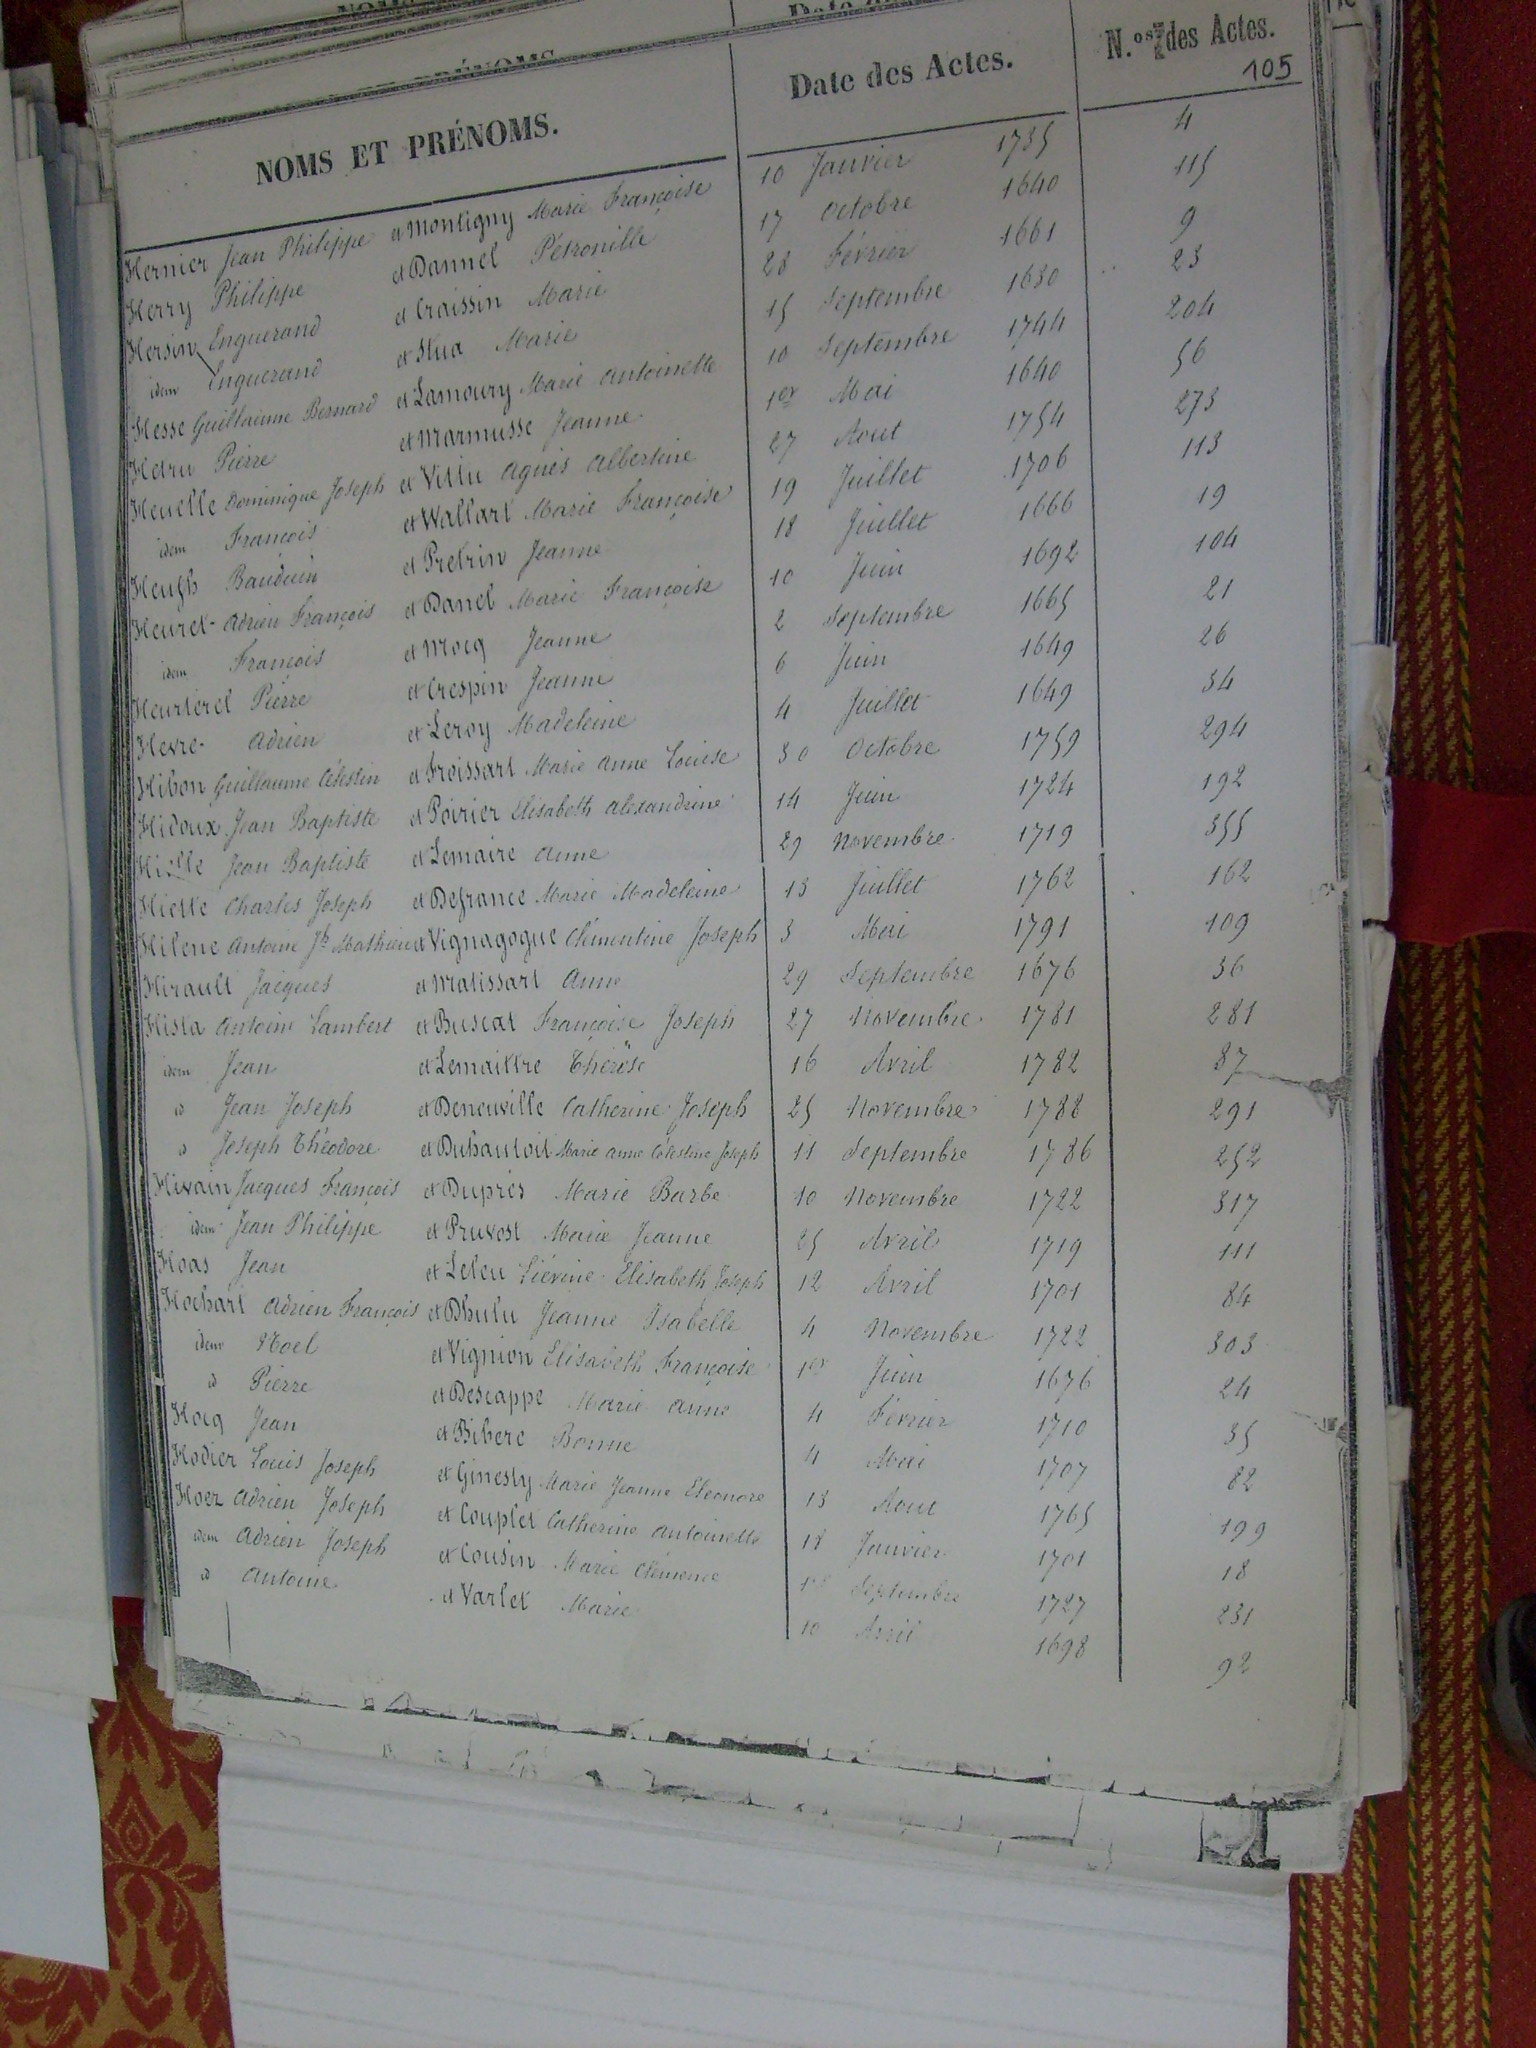 NOMS ET PRÉNOMS. Date des Actes. N.os des Actes.
105
Hernier Jean Philippe et Montigny Marie Françoise 10 Janvier 1735 4
Herry Philippe et Dannel Pétronille 17 Octobre 1640 115
Hersin Enguerand et Craissin Marie 28 Février 1661 9
idem Enguerand et Hua Marie 15 Septembre 1630 23
Hesse Guillaume Bernard et Lamoury Marie Antoinette 10 Septembre 1744 204
Hetru Pierre et Marmusse Jeanne 1er Mai 1640 56
Heuelle Dominique Joseph et Vittu Agnès Albertine 27 Aout 1754 273
idem François et Wallart Marie Françoise 19 Juillet 1706 113
Heugh Bauduin et Pretrin Jeanne 18 Juillet 1666 19
Heuret Adrien François et Danel Marie Françoise 10 Juin 1692 104
idem François et Mocq Jeanne 2 Septembre 1665 21
Heurterel Pierre et Crespin Jeanne 6 Juin 1649 26
Hevre Adrien et Leroy Madeleine 4 Juillet 1649 34
Hibon Guillaume Célestin et Froissart Marie Anne Louise 30 Octobre 1759 294
Hidoux Jean Baptiste et Poirier Elisabeth Alexandrine 14 Juin 1724 192
Jean Baptiste et Lemaire Anne 29 Novembre 1719 355
Hielle Charles Joseph et Defrance Marie Madeleine 13 Juillet 1762 162
Hilene Antoine Jh Mathieu et Vignagogue Clémentine Joseph 3 Mai 1791 109
Hirault Jacques et Matissart Anne 29 Septembre 1676 36
Hista Antoine Lambert et Buscat Françoise Joseph 27 Novembre 1781 281
idem Jean et Lemaittre Thérèse 16 Avril 1782 87
id Jean Joseph et Deneuville Catherine Joseph 25 Novembre 1788 291
id Joseph Théodore et Duhautoit Marie Anne Célestine Joseph 11 Septembre 1786 252
Hivain Jacques François et Duprés Marie Barbe 10 Novembre 1722 317
idem Jean Philippe et Pruvost Marie Jeanne 25 Avril 1719 111
Hoas Jean et Leleu Liévine Elisabeth Joseph 12 Avril 1701 84
Hochart Adrien François et Dhulu Jeanne Isabelle 4 Novembre 1722 303
idem Noel et Vignion Elisabeth Françoise 1er Juin 1676 24
id Pierre et Descappe Marie Anne 4 Février 1710 35
Hocq Jean et Bibere Bonne 4 Mai 1707 82
Hodier Louis Joseph et Ginesty Marie Jeanne Eléonore 13 Aout 1765 199
Hoez Adrien Joseph et Couplet Catherine Antoinette 18 Janvier 1701 18
idem Adrien Joseph et Cousin Marie Clémence 1er Septembre 1727 231
id Antoine et Varlet Marie 10 Avril 1698 92